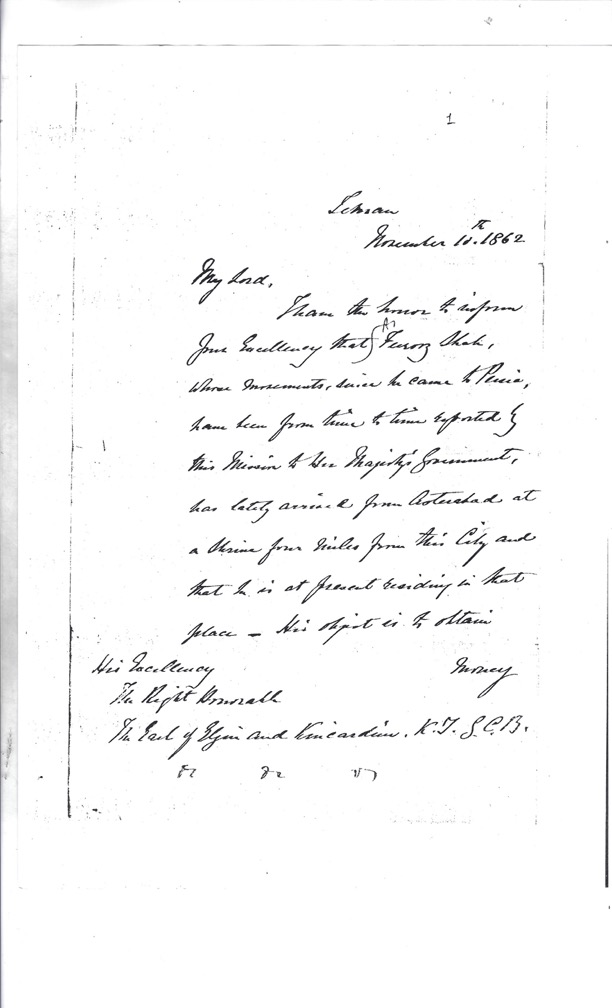 1
Tehran
November 10th. 1862
My Lord,
I have the honor to inform
Your Excellency that Feroz Shah,
whose movements, since he came to Persia,
have been from time to time reported by
this Mission to Her Majesty's Government,
has lately arrived from Asterabad at
a Shrine four miles from this City and
that he is at present residing in that
place – His object is to obtain
Money
His Excellency
The Right Honorable
The Earl of Elgin and Kincardine. K.T. G.C.B.
&c &c &c